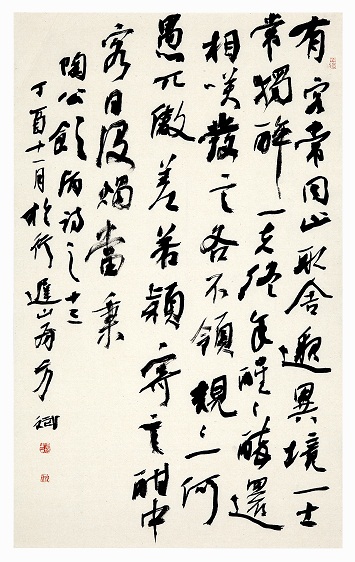 有客常同止取舍邈異境一士
常獨醉一夫終年醒〻醉還
相咲發言各不領規〻一何
愚兀傲差若穎寄言酣中
客日没燭當秉
陶公飲酒詩之十三
丁酉十一月於行進山房方斌